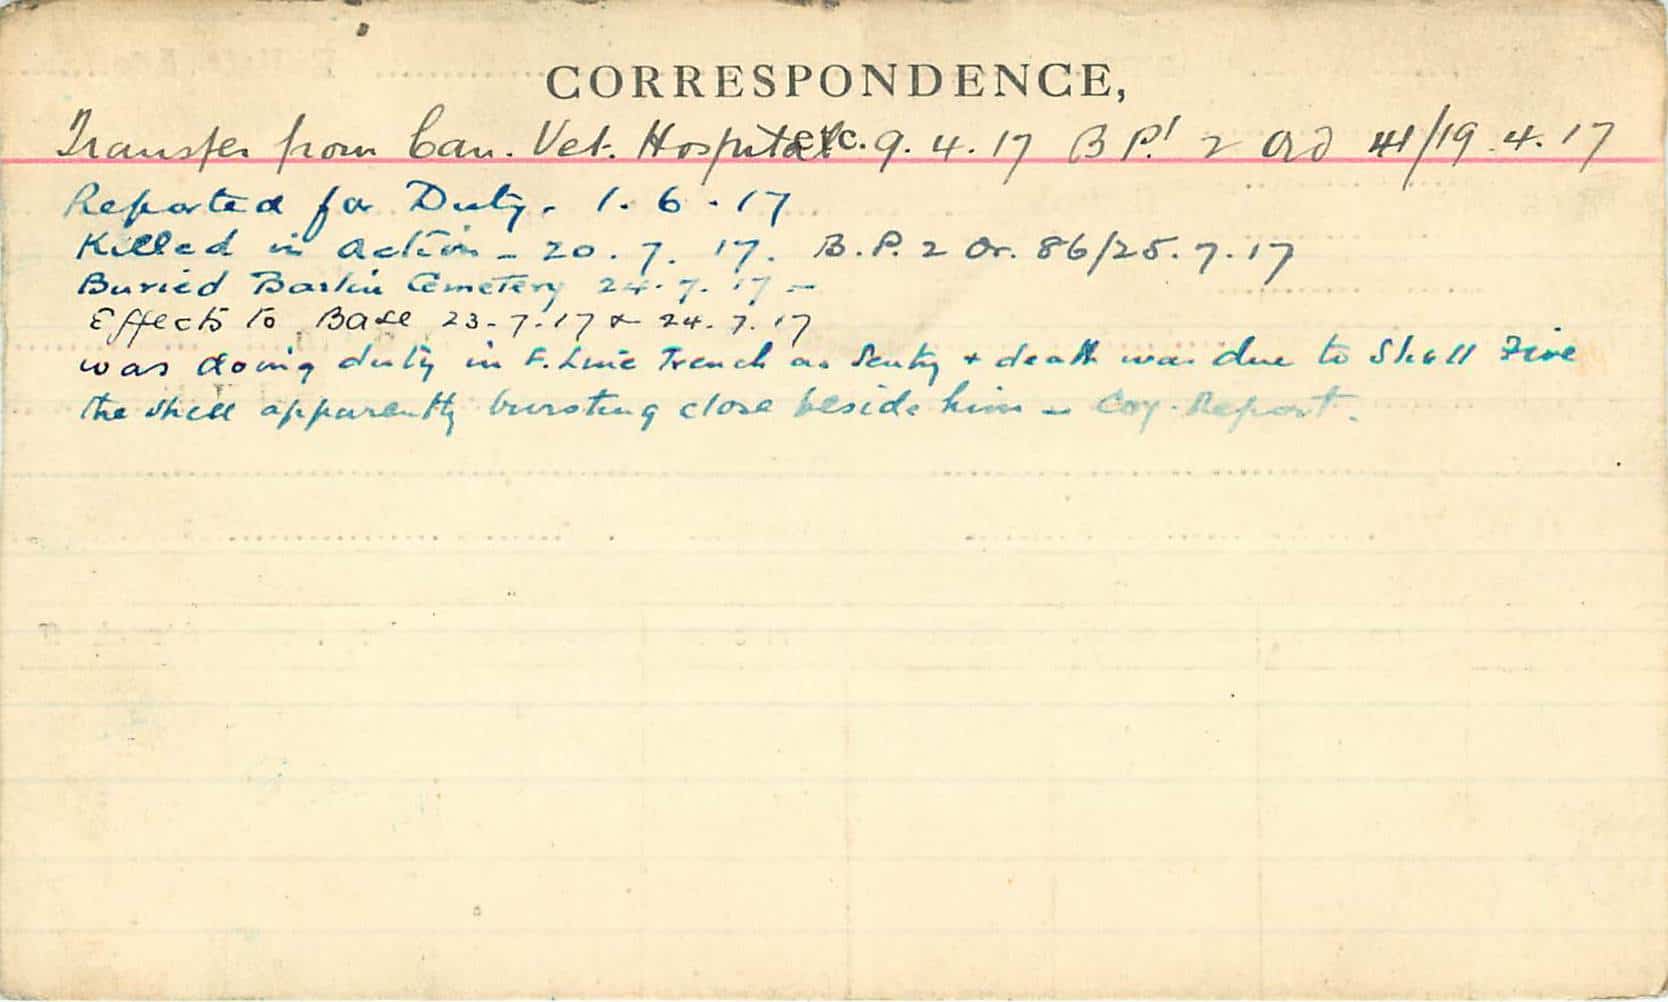 CORRESPONDENCE,
Transfer from Can. Vet. Hospital etc. 9.4.17 B P! 2 Ord 41/19.4.17
Reported for Duty. 1.6.17
Killed in action - 20.7.17. B.P. 2 Or. 86/25.7.17
Buried Barlin Cemetery 24.7.17 -
Effects to Base 23-7.17 & 24.7.17
was doing duty in F. Line Trench as Sentry + death was due to Shell Fire
the shell apparently bursting close beside him - Coy. Report.